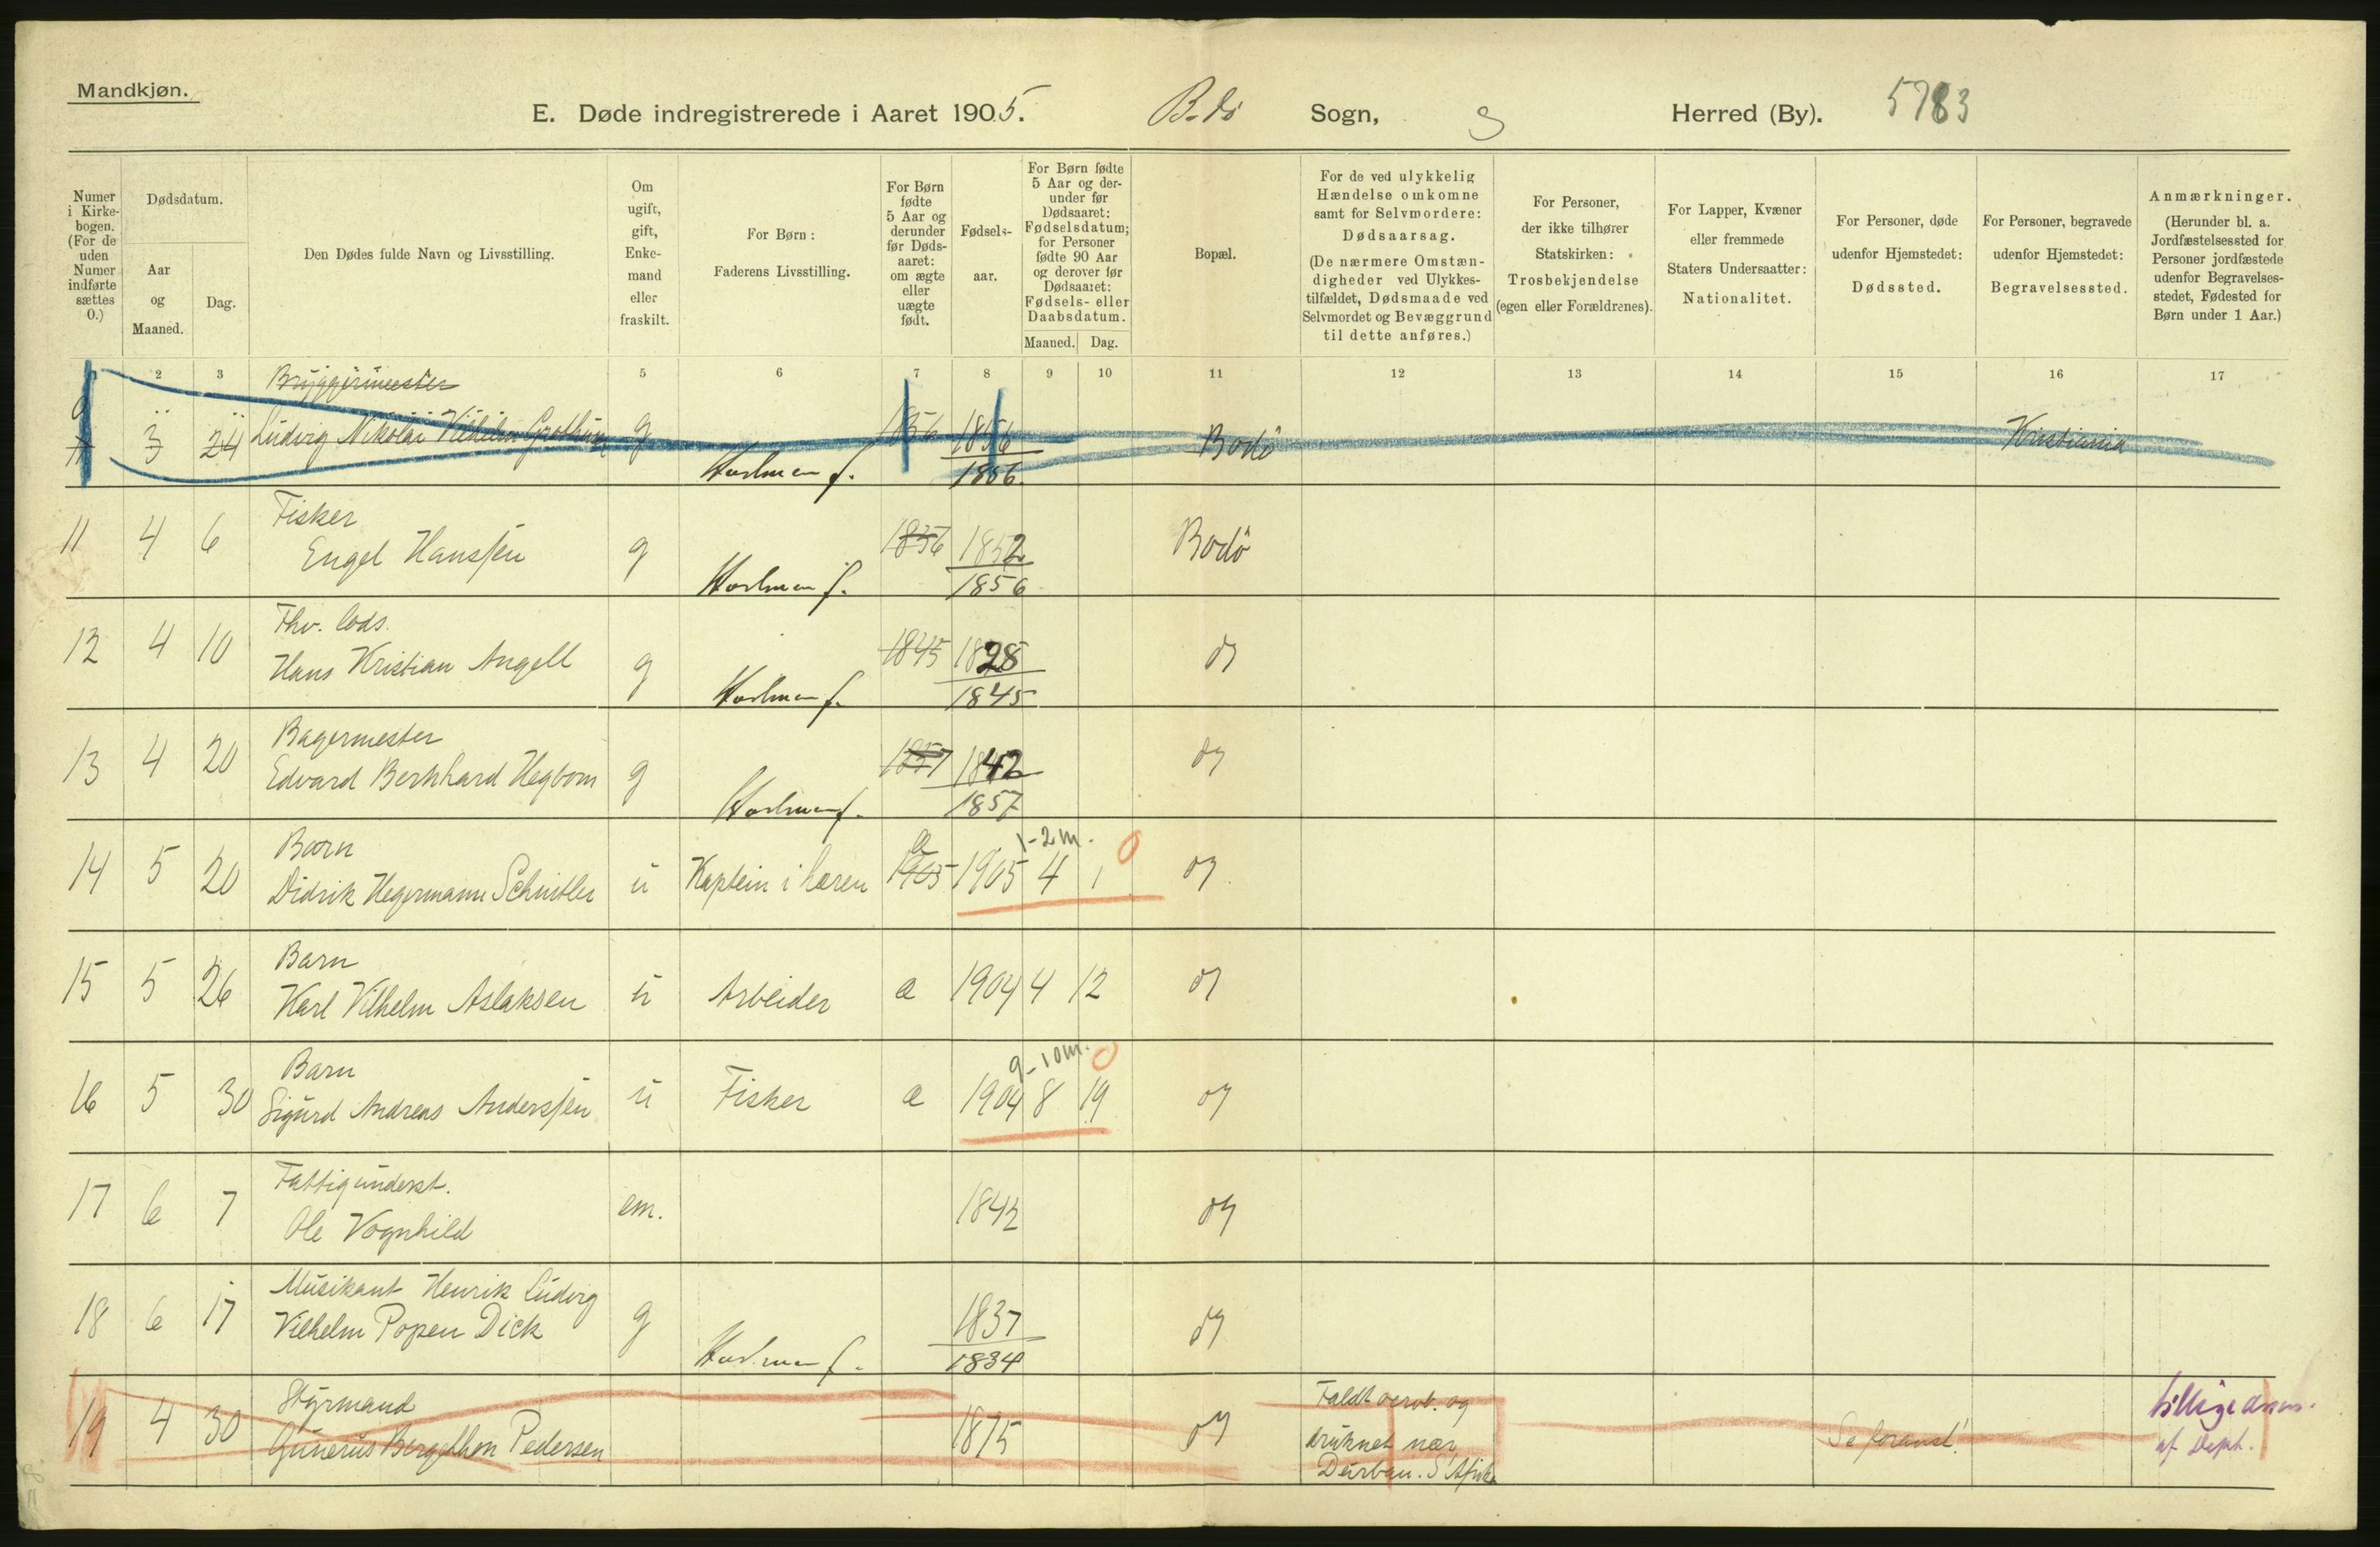 Mandkjøn.
E. Døde indregistrerede i Aaret 1905. Sogn, Herred (By). 5783
Numer i Kirke-bogen. (For de uden Numer indførte sættes 0.)
Dødsdatum.
Aar og Maaned.
Dag.
Den Dødes fulde Navn og Livsstilling.
Om ugift, gift, Enke-mand eller fraskilt.
For Børn: Faderens Livsstilling.
For Børn fødte 5 Aar og derunder før Døds-aaret: om ægte eller uægte født.
Fødsels-aar.
For Børn fødte 5 Aar og der-under før Dødsaaret: Fødselsdatum; for Personer fødte 90 Aar og derover før Dødsaaret: Fødsels- eller Daabsdatum.
Maaned. Dag.
Bopæl.
For de ved ulykkelig Hændelse omkomne samt for Selvmordere: Dødsaarsag. (De nærmere Omstæn-digheder ved Ulykkes-tilfældet, Dødsmaade ved Selvmordet og Bevæggrund til dette anføres.)
For Personer, der ikke tilhører Statskirken: Trosbekjendelse (egen eller Forældrenes).
For Lapper, Kvæner eller fremmede Staters Undersaatter: Nationalitet.
For Personer, døde udenfor Hjemstedet: Dødssted.
For Personer, begravede udenfor Hjemstedet: Begravelsessted.
Anmærkninger. (Herunder bl. a. Jordfæstelsessted for Personer jordfæstede udenfor Begravelses-stedet, Fødested for Børn under 1 Aar.)
2 3 5 6 7 8 9 10 11 12 13 14 15 16 17
Bryggerimester
3 24 Ludvig Nikolai Vilhelm g 1856 1856 Bodö Kristiania
1856
Fisker
11 4 6 Engel Hansen g 1856 1852 Bodö
1856
Fhv. lods.
12 4 10 Hans Kristian Angell g 1845 1828 do
1845
Bagermester
13 4 20 Edvard Bernhard Hegbom g 1857 1842 do
1857
Barn 1-2 m. 0
14 5 20 Didrik Hegermann Schiøtler u Kaptein i hæren 1905 1905 4 1 do
Barn
15 5 26 Karl Vilhelm Aslaksen u Arbeider æ 1904 4 12 do
Barn 9-10 m. 0
16 5 30 Sigurd Andreas Andersen u Fisker æ 1904 8 19 do
Fattigunderst.
17 6 7 Ole Vognhild em. 1842 do
Musikant Henrik Ludvig
18 6 17 Vilhelm Popen Dick g 1837 do
1834
Styrmand Faldt overb. og
19 4 30 Gunerus Bergithon Pedersen 1875 do druknet nær
Durban. S Afrika
af Dept.